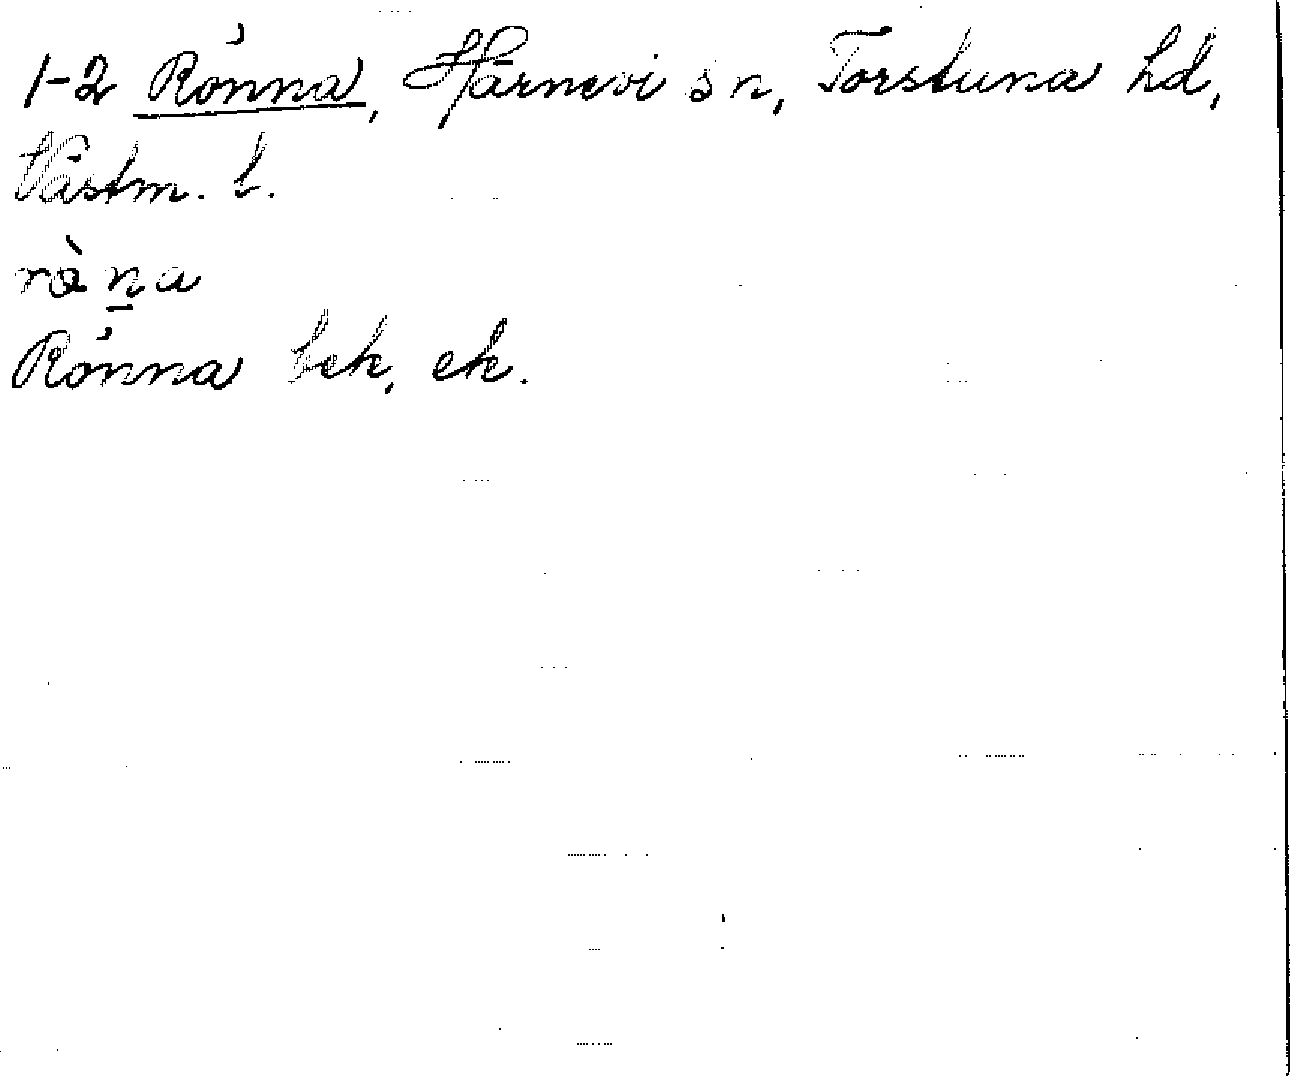 1-2 Rönna, Härnevi sn, Torstuna hd,
Västm. l.
rὰn̲a
Rönna bek, ek.